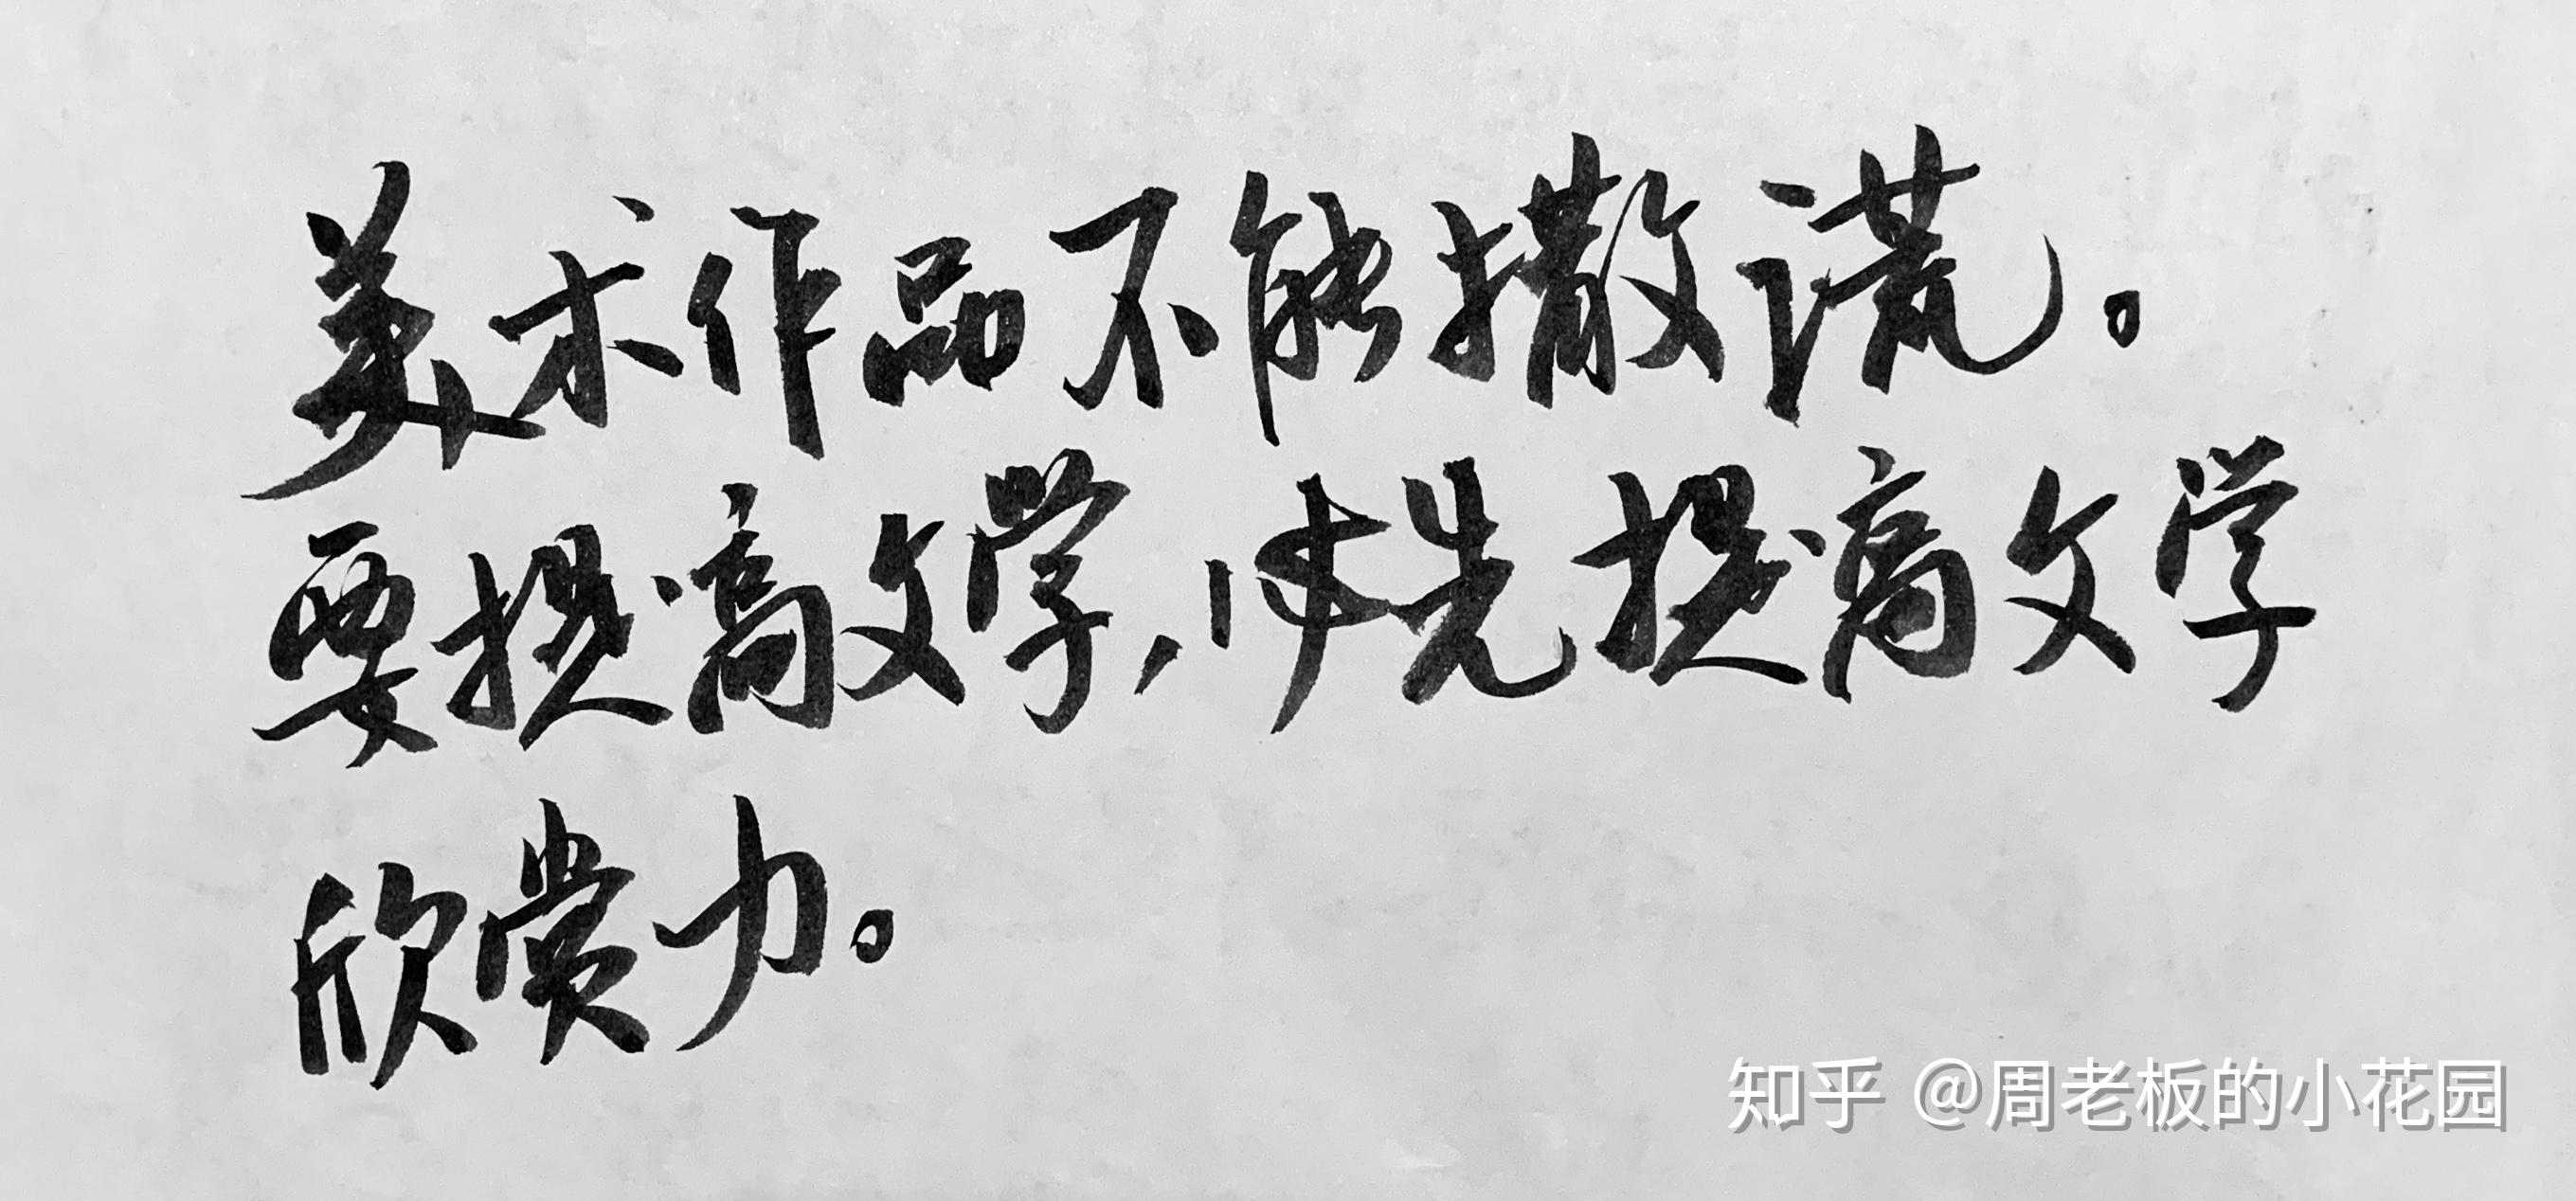 美术作品不能撒谎。
要提高文学,必先提高文学
欣赏力。
知乎 @周老板的小花园